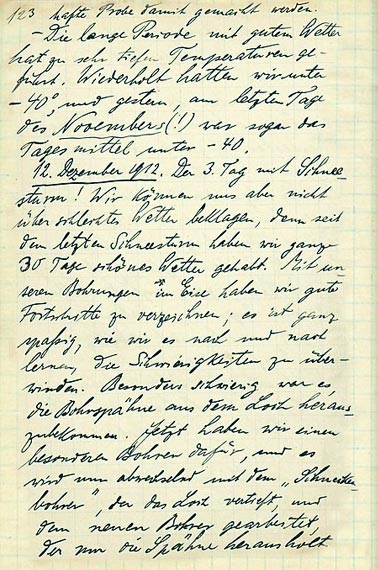 123 hafte Probe damit gemacht werden.
- Die lange Periode mit gutem Wetter
hat zu sehr tiefen Temperaturen ge-
führt. Wiederholt hatten wir unter
- 40°, und gestern, am letzten Tage
des Novembers (!) war sogar das
Tagesmittel unter - 40.
12. Dezember 1912. Der 3. Tag mit Schnee-
sturm! Wir können uns aber nicht
über schlechtes Wetter beklagen, denn seit
dem letzten Schneesturm haben wir ganze
30 Tage schönes Wetter gehabt. Mit un
seren Bohrungen im Eise haben wir gute
Fortschritte zu verzeichnen; es ist ganz
spaßig, wie wir es nach und nach
lernen, die Schwierigkeiten zu über-
winden. Besonders schwierig war es
die Bohrspähne aus dem Loch heraus-
zubekommen. Jetzt haben wir einen
besonderen Bohrer dafür, und es
wird nun abwechselnd mit dem „Schnecken-
bohrer", der das Loch vertieft, und
dem neuen Bohrer gearbeitet,
der nur die Spähne herausholt